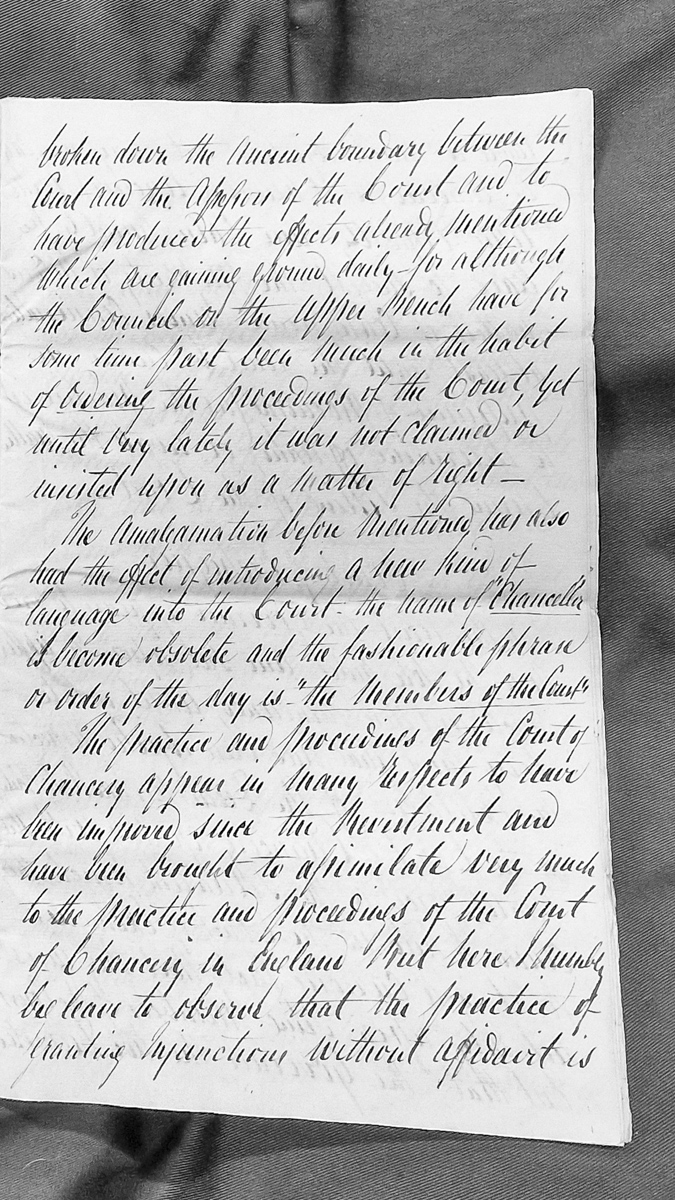 broken down the Ancient boundary between the
Court and the Assessors of the Court and to
have produced the effects already mentioned
which are gaining ground daily – for although
the Council on the Upper Bench have for
some time past been much in the habit
of Ordering the proceedings of the Court, yet
until very lately it was not claimed or
insisted upon as a Matter of Right —
The Amalgamation before Mentioned has also
had the effect of introducing a new kind of
language into the Court - the name of "Chancellor
is become obsolete and the fashionable phrase
or order of the day is - "the Members of the Court"
The practice and proceedings of the Court of
Chancery appear in Many Respects to have
been improved since the Revestment and
have been brought to assimilate very much
to the practice and proceedings of the Court
of Chancery in England But here I humbly
beg leave to observe that the practice of
granting Injunctions without affidavit is